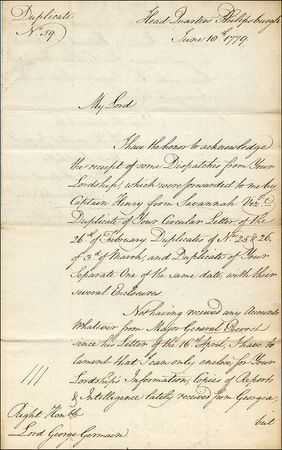 Duplicate
No. 59
Head Quarters Philipsburgh
June 18th 1779
My Lord
I have the honor to acknowledge
the receipt of some Despatches from Your
Lordship, which were forwarded to me by
Captain Henry from Savannah Vizt
Duplicate of Your Circular Letter of the
26th of February, Duplicate of Nos 25 & 26,
of 3d of March, and Duplicate of Your
Separate One of the same date, with their
several Enclosures.
Not having received any Accounts
Whatever from Major General Prevost
since his Letter of the 16th April, I have to
lament that I can only enclose for Your
Lordships Information, Copies of Reports
& Intelligence lately received from Georgia,
but
Right Honble
Lord George Germain